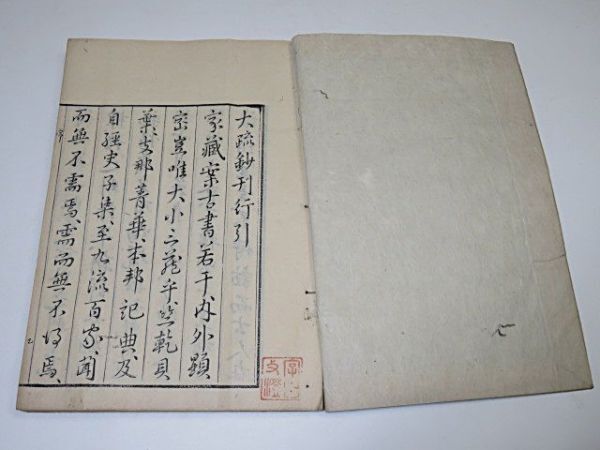 大疏鈔刊行引
家藏案古書若干内外顯
密豈唯大小三藏乎竺乾貝
葉支那菁華本邦記典及
自經史子集至九流百家聞
而無不需焉需而無不得焉
序